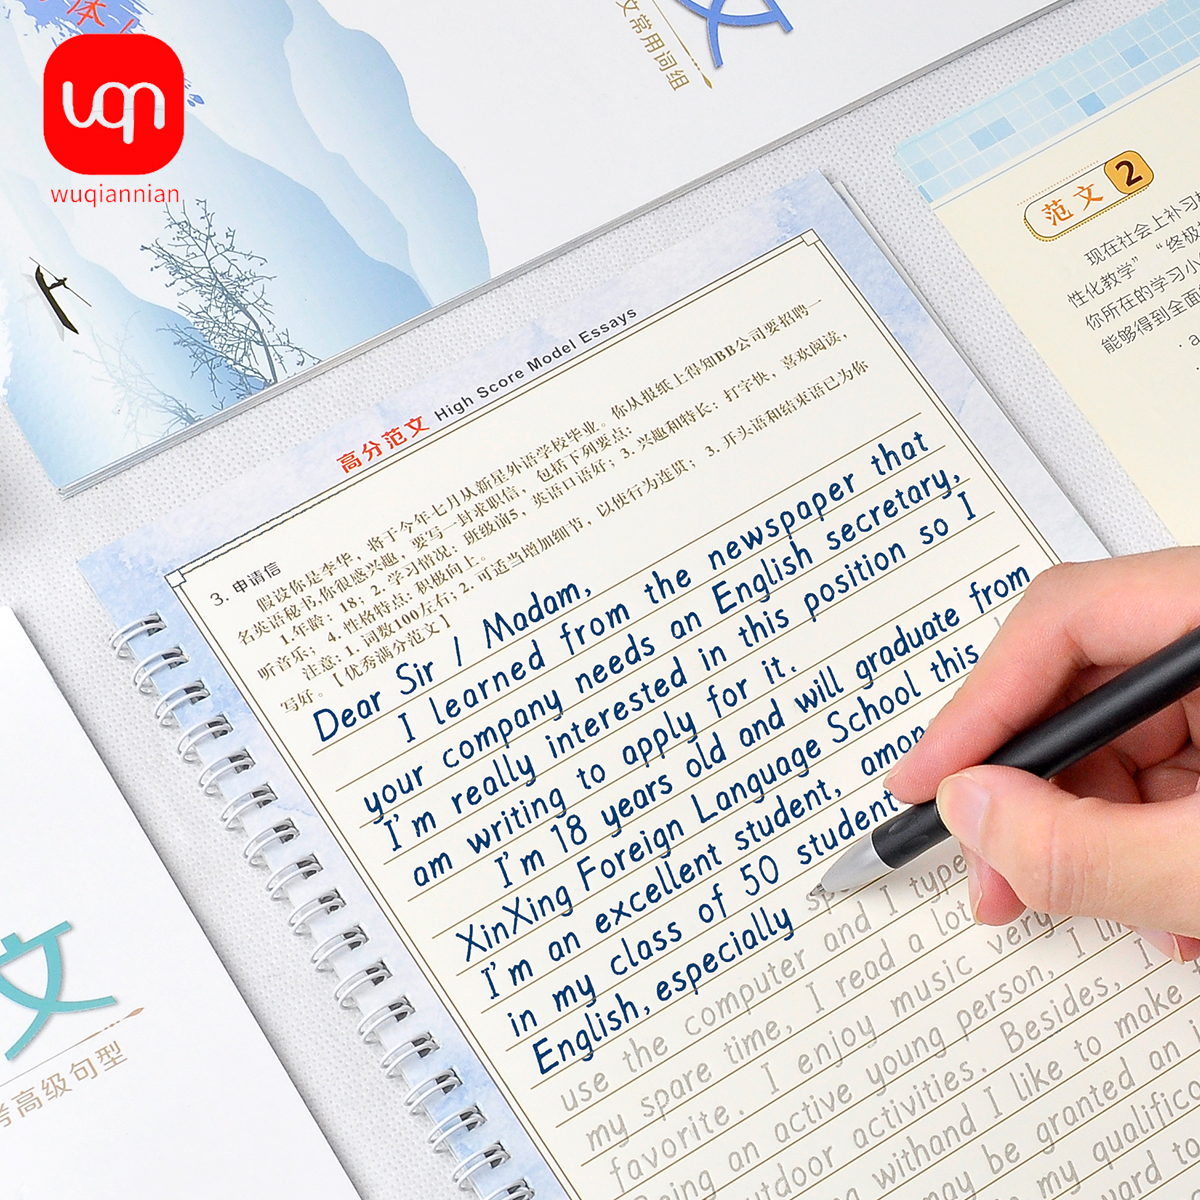 uqn
wuqiannian
文
文常用词组
范文2
现在社会上补习
性化教学”“终极
你所在的学习小
能够得到全面
高分范文 High Score Model Essays
3. 申请信
假设你是李华，将于今年七月从新星外语学校毕业。你从报纸上得知BB公司要招聘一
名英语秘书,你很感兴趣，要写一封求职信，包括下列要点:
1.年龄：18；2. 学习情况：班级前5，英语口语好；3. 兴趣和特长：打字快，喜欢阅读，
听音乐；4. 性格特点：积极向上。
注意：1. 词数100左右；2. 可适当增加细节，以使行为连贯；3. 开头语和结束语已为你
写好。【优秀满分范文】
Dear Sir / Madam,
I learned from the newspaper that
your company needs an English secretary,
I'm really interested in this position so I
am writing to apply for it.
I'm 18 years old and will graduate from
XinXing Foreign Language School this
I'm an excellent student, among
in my class of 50 student
English, especially
use the computer and I type
my spare time, I read a lot
favorite. I enjoy music very
Being an active young person, I li
outdoor activities. Besides, I
withand I like to make
may be granted an
my qualific
ward to
文
考高级句型